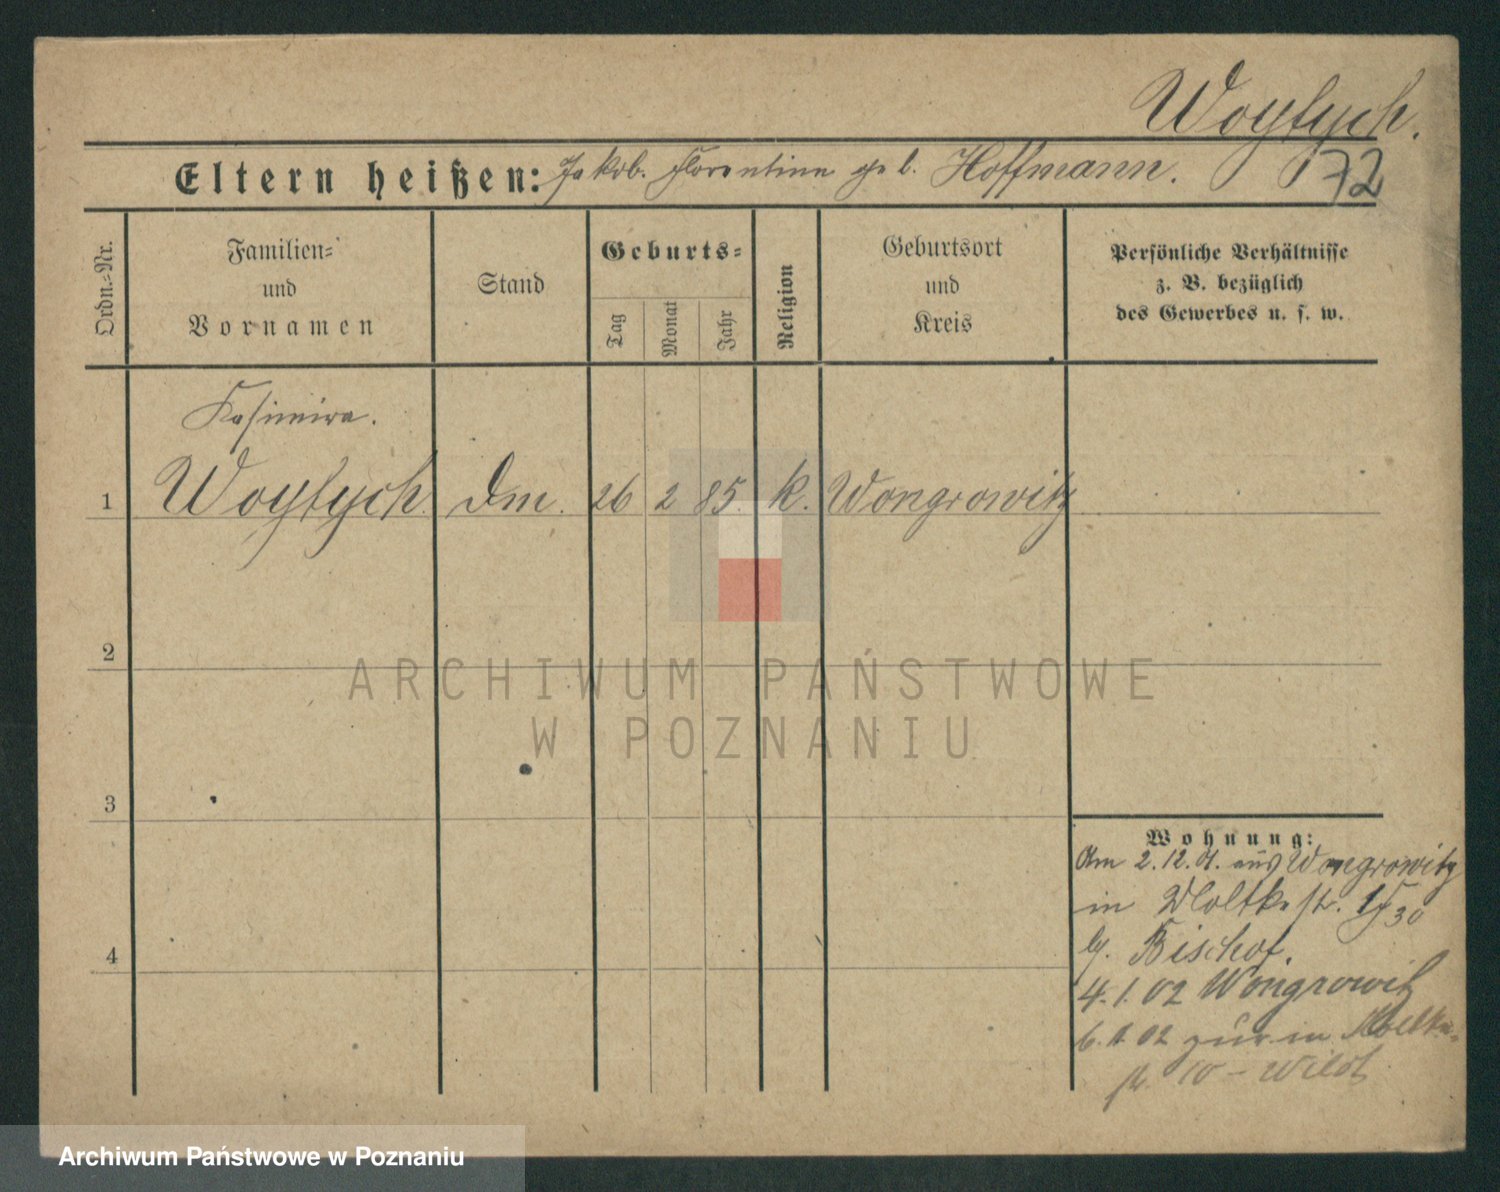 Woytych.
Eltern heißen: Jakob. Florentine geb. Hoffmann.
72
Ordn.-Nr.
Familien-
und
Vornamen
Stand
Geburts-
Tag
Monat
Jahr
Religion
Geburtsort
und
Kreis
Persönliche Verhältnisse
z. B. bezüglich
des Gewerbes u. s. w.
Kasimira.
1 Woytych. Dm. 26 2 85. k. Wongrowitz
2
ARCHIWUM PAŃSTWOWE
W POZNANIU
3
Wohnung:
Am 2.12.01. aus Wongrowitz
in Moltkestr. 30
b. Bischof.
4
4.1.02 Wongrowitz
6.1.02 zur. in Moltke-
str. 10 - Wildt
Archiwum Państwowe w Poznaniu